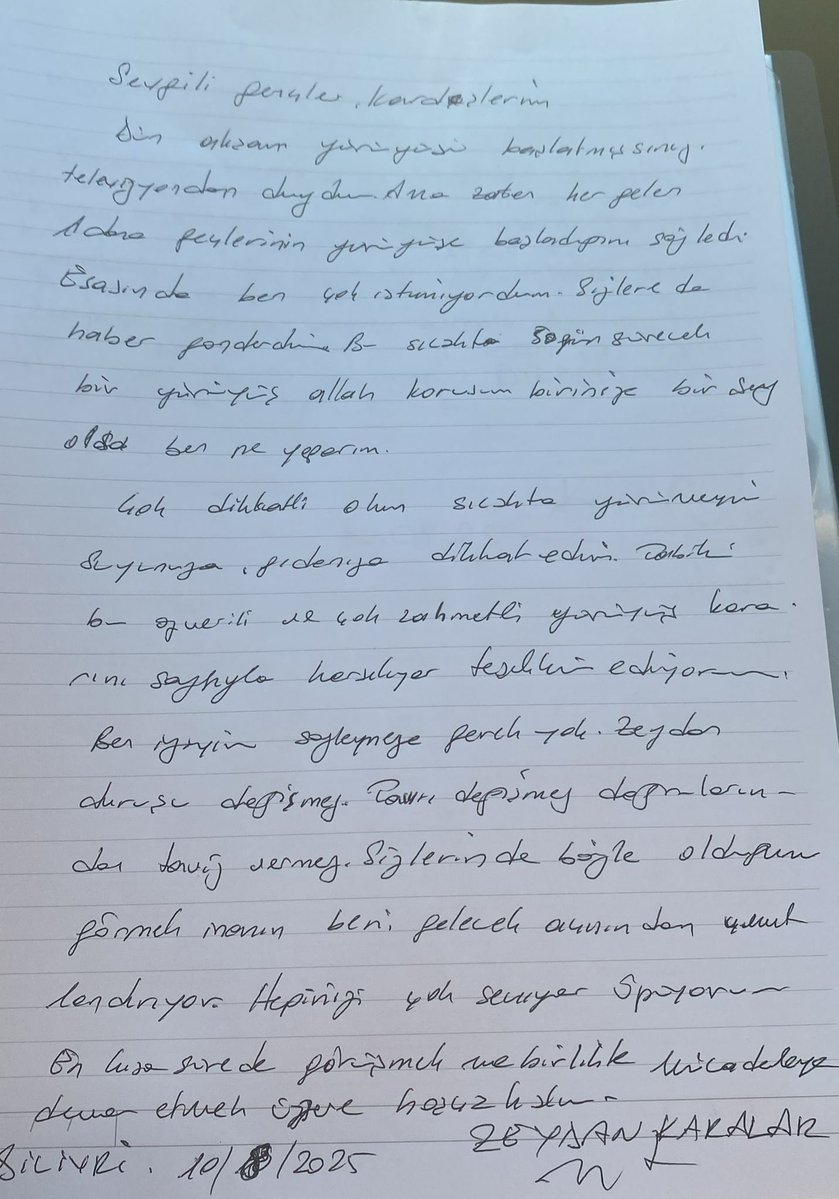 Sevgili gençler, kardeşlerim
Dün akşam yürüyüşü başlatmışsınız.
televizyondan duydum. Ama zaten her gelen
Adana gençlerinin yürüyüşe başladığını söyledi.
Esasında ben çok istemiyordum. Sizlere de
haber gönderdim. Bu sıcakta 5 gün sürecek
bir yürüyüş allah korusun birinize bir şey
olsa ben ne yaparım.
Çok dikkatli olun sıcakta yürümeyin
Suyunuza, gıdanıza dikkat edin. Tabiki
bu özverili ve çok zahmetli yürüyüş kara-
rını saygıyla karşılıyor teşekkür ediyorum.
Ben iyiyim söylemeye gerek yok. Zeydan
duruşu değişmez. Tavrı değişmez doğruların-
dan taviz vermez. Sizlerinde böyle olduğunu
görmek inanın beni gelecek açısından umut
lendiriyor. Hepinizi çok seviyor öpüyorum
En kısa sürede görüşmek ve birlikte mücadeleye
devam etmek üzere hoşça kalın.
ZEYDAN KARALAR
SİLİVRİ. 10/8/2025